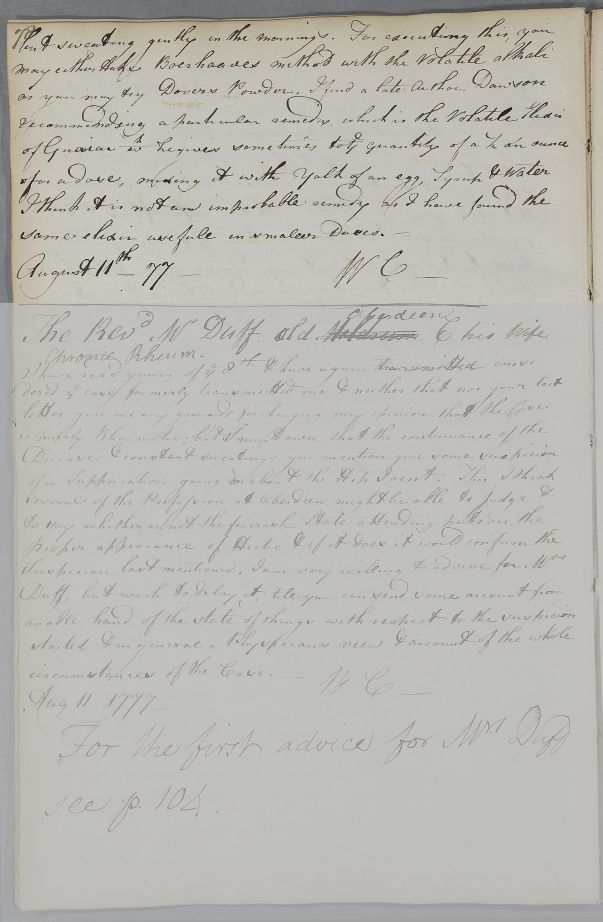 & sweating gently in the mornings. For executing this, you
may either take Boerhaaves method with the Volatile alkali
or you may try Dovers Powder. I find a late Author Dawson
recommending a particular remedy, which is the Volatile Elixir
of Guaiac wh he gives sometimes to ye quantity of a ½ an ounce
for a dose, mixing it with Yolk of an egg, Syrup & Water
I think it is not an improbable remedy as I have found the
same elixir usefull in smaller Doses. —
August 11th 77 — W C —
The Revd Mr Duff old Meldrum Aberdeen C his Wife
Chronic Rheum.
I have recd yours of ye 8th & have again transmitted consi
dered ye case formerly transmitted me & neither that nor your last
letter give me any grounds for changing my opinion that the Case
is purely Rheumatic; but I must own that the continuance of the
Disease & constant sweatings you mention give some suspicion
of a Suppuration going on about the Hip Joint. This I think
several of the Profession at Aberdeen might be able to judge &
to say whether or not the feverish State attending puts on the
proper appearance of Hectic & if it does it would confirm the
Suspicion last mentioned. I am very willing to advise for Mrs
Duff, but wish to delay it, till you can send some account from
an able hand of the state of things with respect to the suspicion
started & in general a Physicians view & account of the whole
circumstances of the Case. — W C —
Aug 11 1777
For the first advice for Mrs Duff
see p. 104.